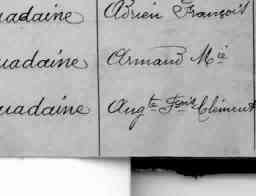 uadaine Adrien François
uadaine Armand Mie
uadaine Augte Fois Clément